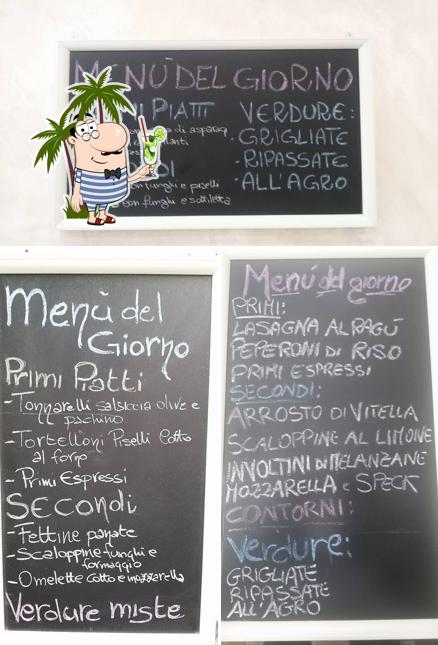 MENÙ DEL GIORNO
NI PIATTI
di asparagi
VERDURE:
GRIGLIATE
- RIPASSATE
- ALL'AGRO
con funghi e piselli
con funghi e sottiletta
Menù del
Giorno
Primi Piatti
- Tonnarelli salsiccia olive e
pachino
- Tortelloni Piselli Cotto
al forno
- Primi Espressi
SECONDI
- Fettine panate
- Scaloppine funghi e
formaggio
- Omelette cotto e mozzarella
Verdure miste
Menú del giorno
PRIMI:
LASAGNA AL RAGÚ
PEPERONI DI RISO
PRIMI ESPRESSI
SECONDI:
ARROSTO DI VITELLA
SCALOPPINE AL LIMONE
INVOLTINI DI MELANZANE
MOZZARELLA e SPECK
CONTORNI:
Verdure:
GRIGLIATE
RIPASSATE
ALL'AGRO